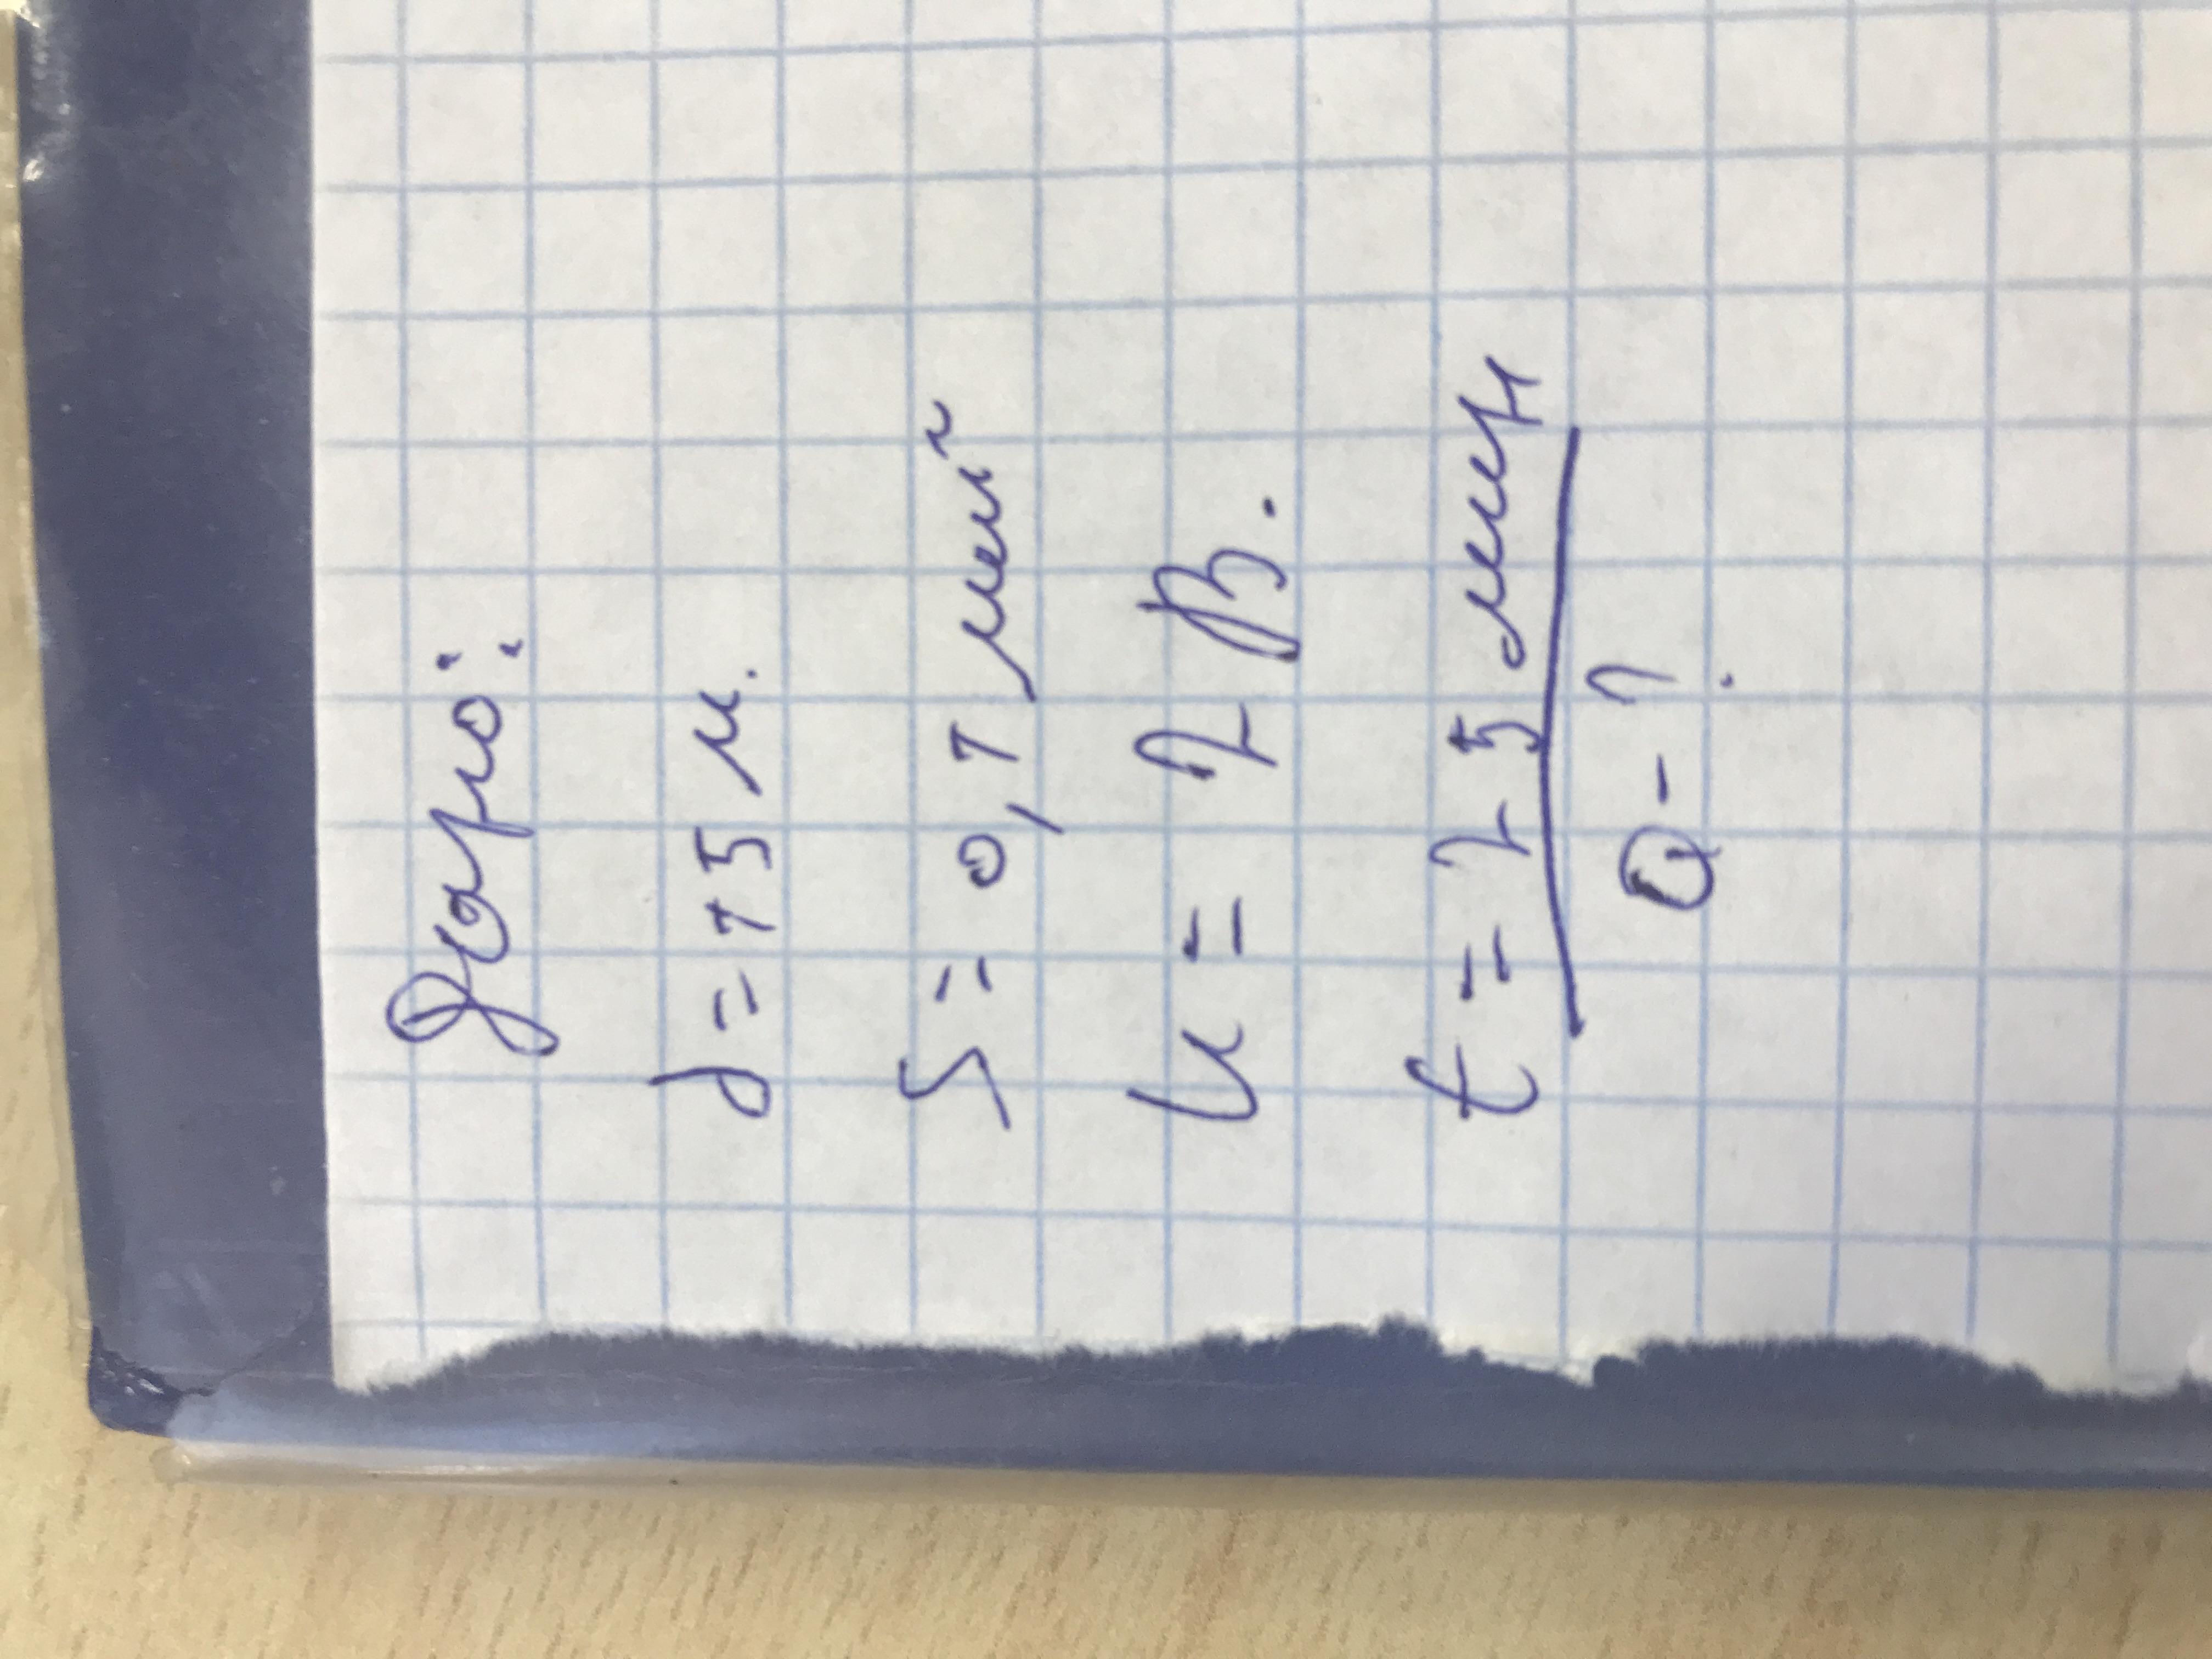 Дано:
l = 15 м.
S = 0,1 мм²
U = 2 В.
t = 25 мин
Q - ?